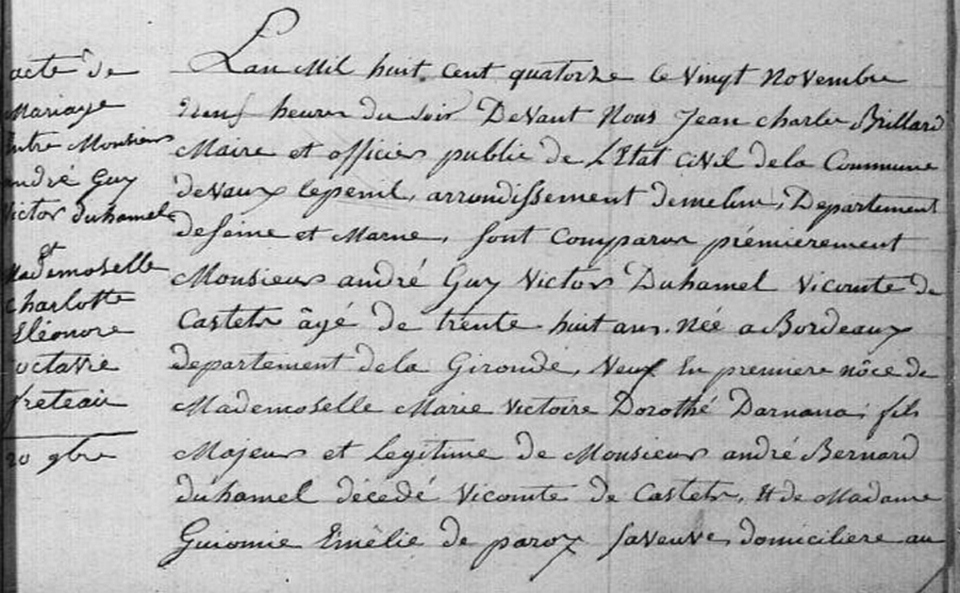 acte de
Mariage
Entre Monsieur
andré Guy
Victor duhamel
et
Mademoselle
Charlotte
Eléonore
octavie
freteau
20 9bre
Lan Mil huit cent quatorze le vingt Novembre
Neuf heures du soir Devant Nous Jean charles Brillard
Maire et officier public de L'Etat Civil dela Commune
deVaux lepenil, arrondissement demelun, Departement
deseine et Marne, sont Comparus prémierement
Monsieur andré Guy Victor Duhamel Vicomte de
Castets âgé de trente huit ans. Née a Bordeaux
departement dela Gironde, Veuf En premiere nôce de
Mademoselle Marie Victoire Dorothé Darnana, fils
Majeur et Legitime de Monsieur andré Bernard
duhamel décedé Vicomte de Castets, Et de Madame
Guionie Emèlie de paroy saVeuve, domiciliere au